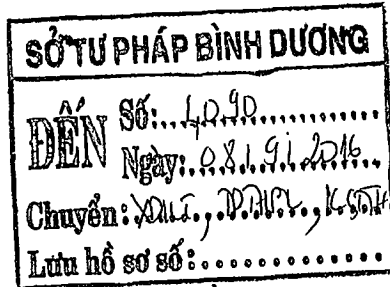 SỞ TƯ PHÁP BÌNH DƯƠNG
ĐẾN
Số: 4090
Ngày: 08/9/2016
Chuyển:
Lưu hồ sơ số: